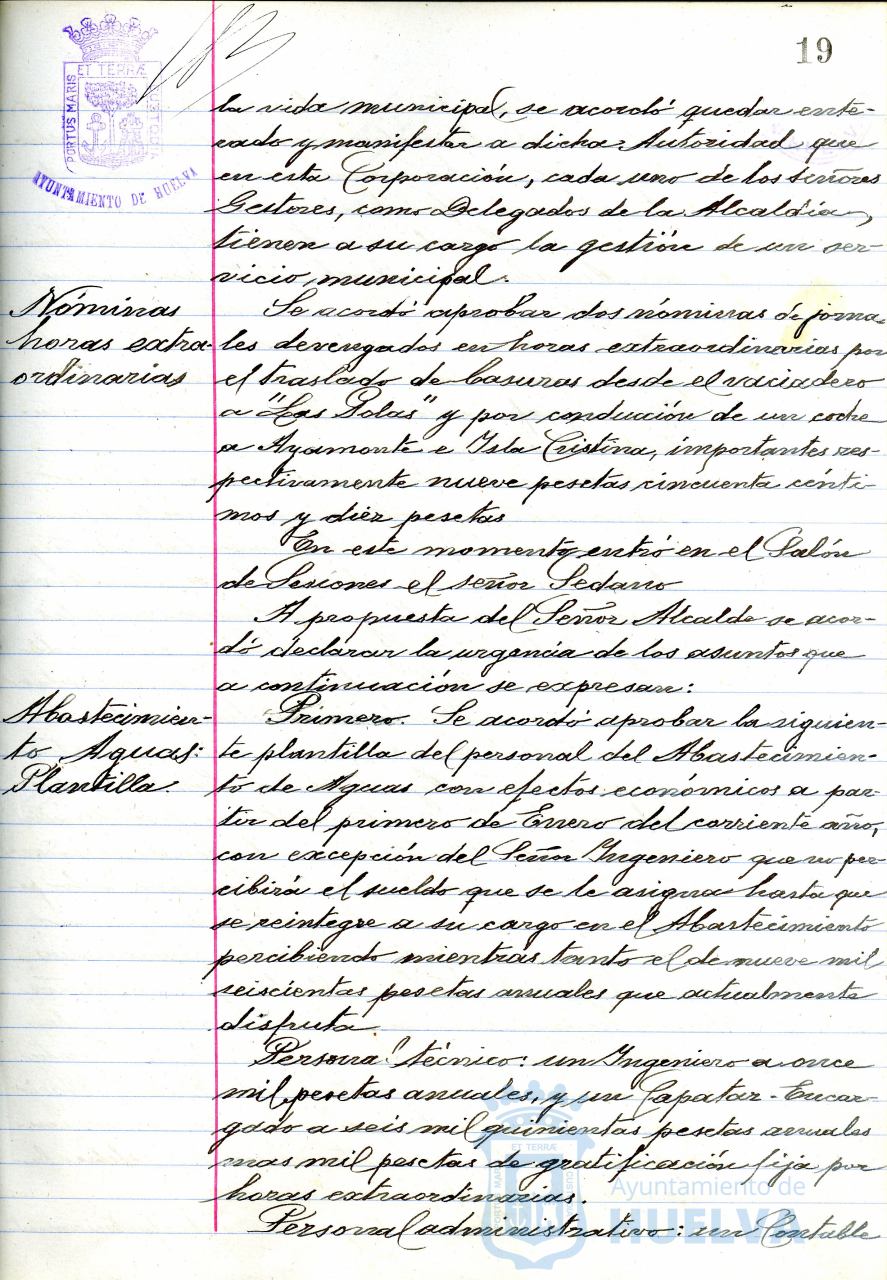 19
ET TERRÆ
PORTUS MARIS
CUSTODIA
AYUNTAMIENTO DE HUELVA
la vida municipal, se acordó quedar ente-
rado y manifestar a dicha Autoridad que
en esta Corporación, cada uno de los señores
Gestores, como Delegados de la Alcaldía,
tienen a su cargo la gestión de un ser-
vicio municipal.
Nóminas
horas extra-
ordinarias
Se acordó aprobar dos nóminas de jorna-
les devengados en horas extraordinarias por
el traslado de basuras desde el vaciadero
a "Las Polas" y por conducción de un coche
a Ayamonte e Isla Cristina, importantes res-
pectivamente nueve pesetas cincuenta cénti-
mos y diez pesetas
En este momento entró en el Salón
de Sesiones el señor Sedano
A propuesta del Señor Alcalde se acor-
dó declarar la urgencia de los asuntos que
a continuación se expresan:
Abastecimien-
to Aguas:
Plantilla.
Primero. Se acordó aprobar la siguien-
te plantilla del personal del Abastecimien-
to de Aguas con efectos económicos a par-
tir del primero de Enero del corriente año,
con excepción del Señor Ingeniero que no per-
cibirá el sueldo que se le asigna hasta que
se reintegre a su cargo en el Abastecimiento
percibiendo mientras tanto el de nueve mil
seiscientas pesetas anuales que actualmente
disfruta.
Personal técnico: un Ingeniero a once
mil pesetas anuales, y un Capataz-Encar-
gado a seis mil quinientas pesetas anuales
mas mil pesetas de gratificación fija por
horas extraordinarias.
Personal administrativo: un Contable
ET TERRÆ
Ayuntamiento de
HUELVA